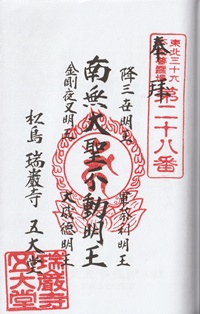 奉拝
東北三十六
不動尊霊場
第二十八番
降三世明王
軍荼利明王
南無大聖不動明王
大威徳明王
金剛夜叉明王
松島 瑞巌寺 五大堂
瑞巌寺
五大堂